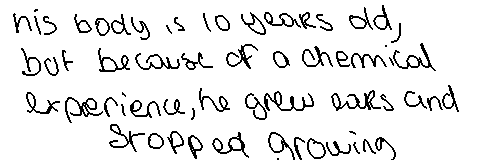 his body is 10 years old,
but because of a chemical
experience, he grew ears and
stopped growing